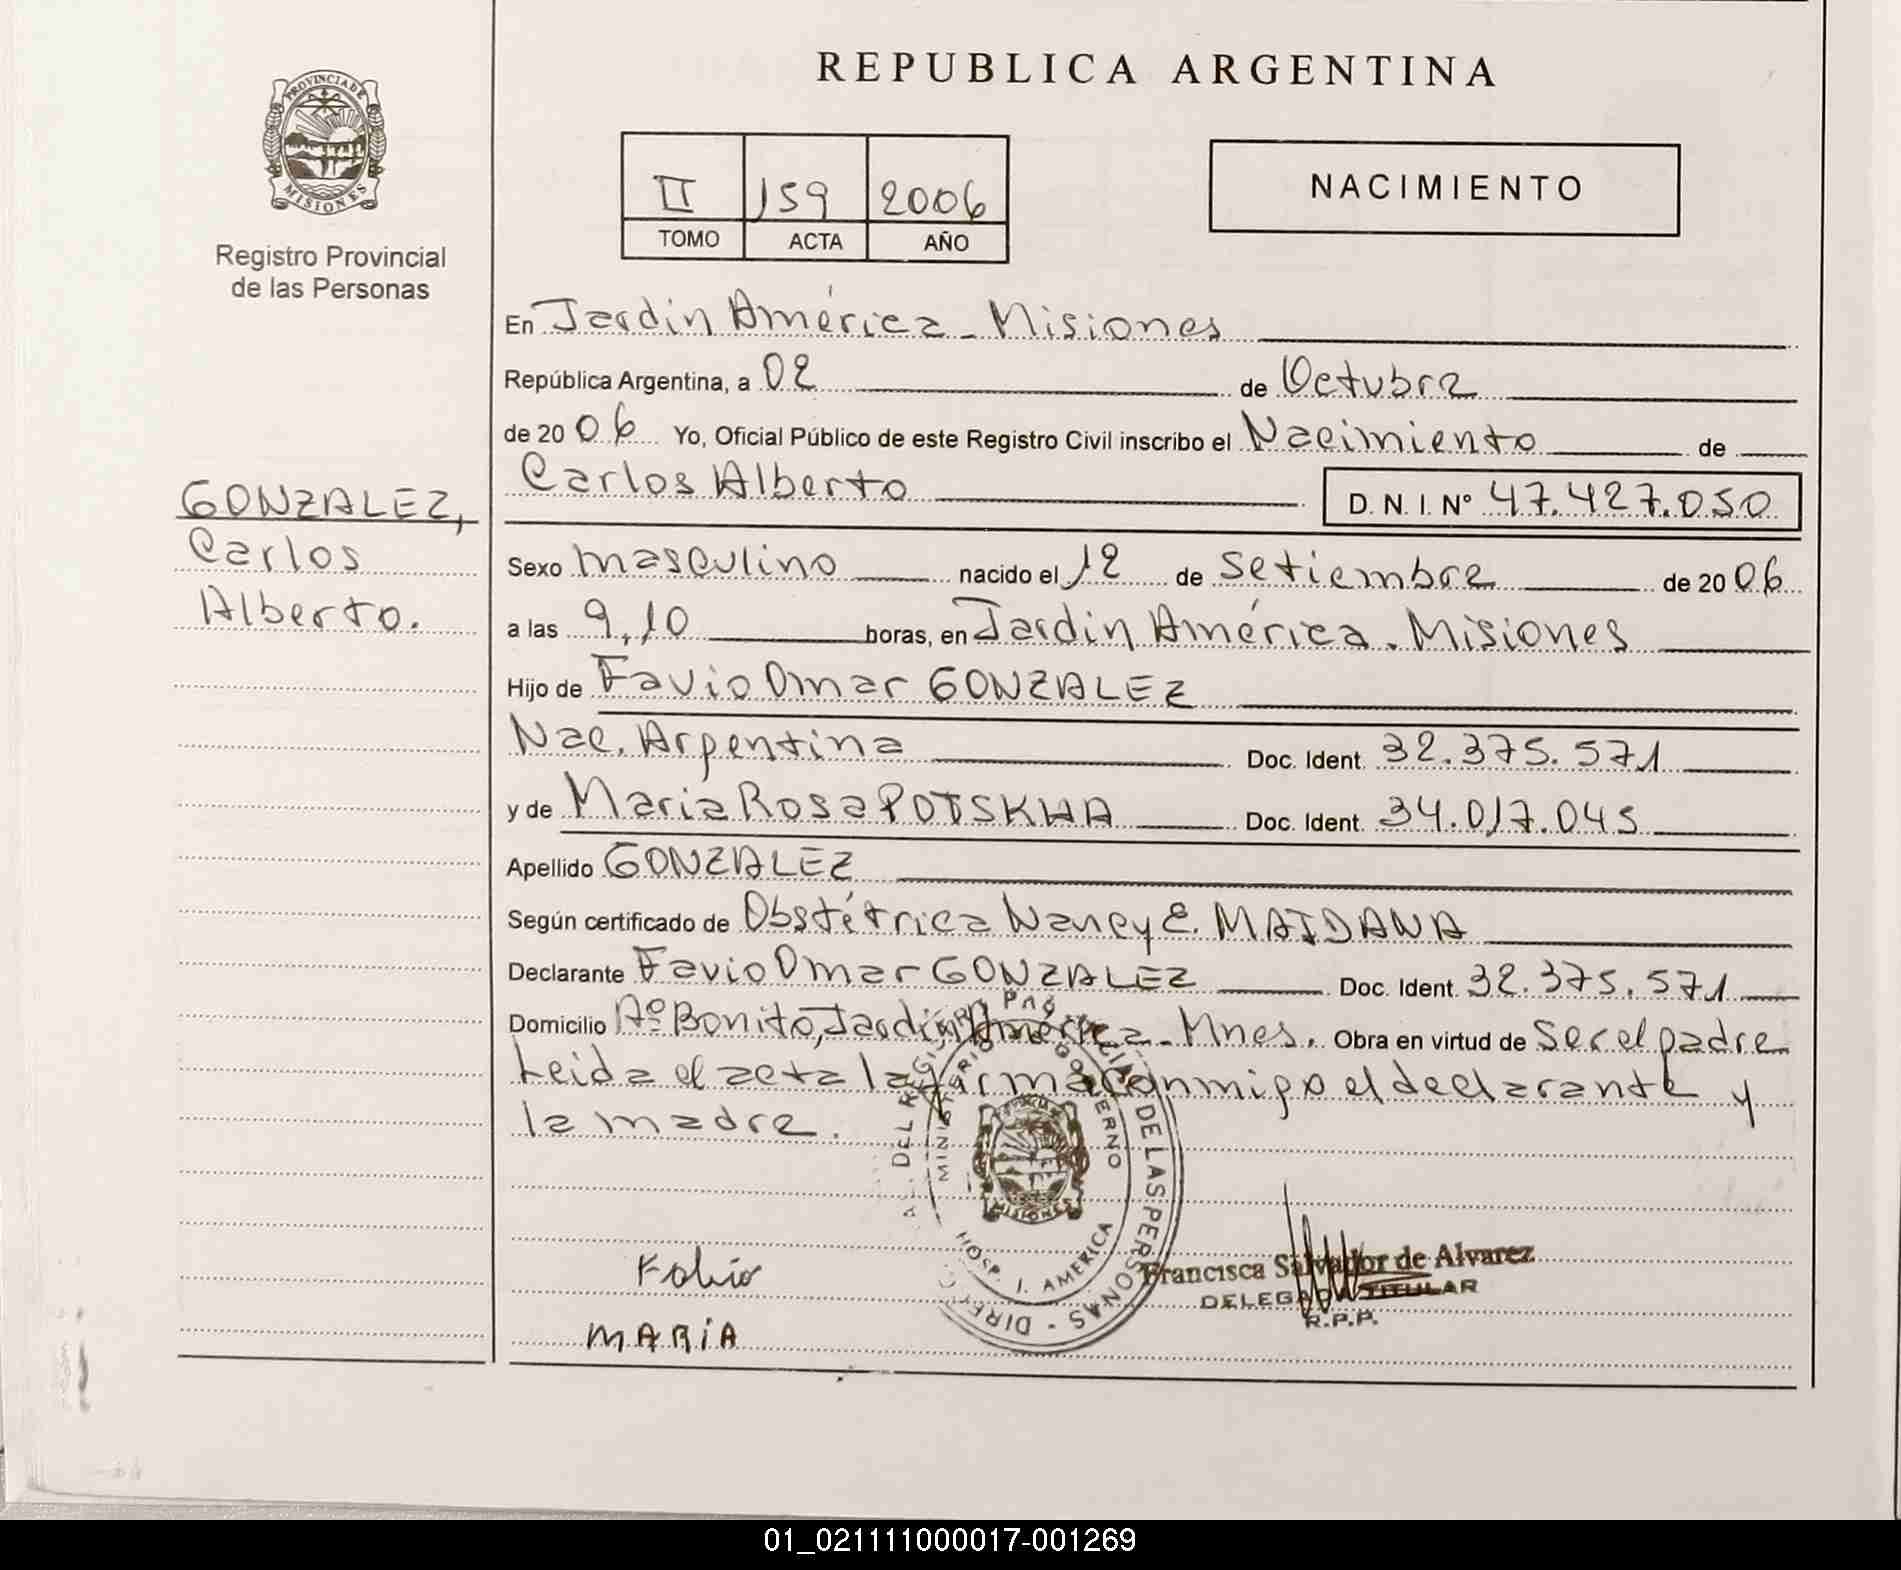 REPUBLICA ARGENTINA
PROVINCIA DE
MISIONES
Registro Provincial
de las Personas
II 159 2006
TOMO ACTA AÑO
NACIMIENTO
En Jardín América - Misiones
República Argentina, a 02 de Octubre
de 20 06 Yo, Oficial Público de este Registro Civil inscribo el Nacimiento de
Carlos Alberto D. N. I. Nº 47.427.050
GONZALEZ,
Carlos
Alberto.
Sexo masculino nacido el 12 de Setiembre de 20 06
a las 9,10 horas, en Jardín América. Misiones
Hijo de Favio Omar GONZALEZ
Nac. Argentina Doc. Ident. 32.375.571
y de Maria Rosa POTSKHA Doc. Ident. 34.017.045
Apellido GONZALEZ
Según certificado de Obstétrica Nancy E. MAIDANA
Declarante Favio Omar GONZALEZ Doc. Ident. 32.375.571
Domicilio Aº Bonito, Jardín América - Mnes. Obra en virtud de Ser el padre
Leida el acta la firma conmigo el declarante y
la madre.
MINISTERIO GOBIERNO
DE LAS PERSONAS - DIREC
HOSP. J. AMERICA
MISIONES
Fabio
MARIA
Francisca Salvador de Alvarez
DELEGADA TITULAR
R.P.P.
01_021111000017-001269